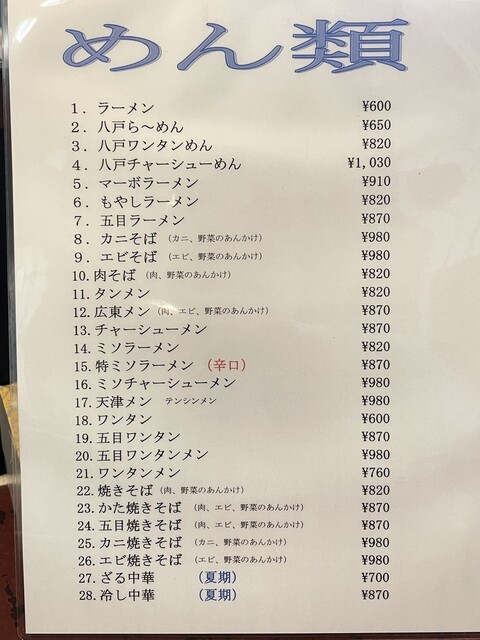 めん類
1．ラーメン ¥600
2．八戸ら～めん ¥650
3．八戸ワンタンめん ¥820
4．八戸チャーシューめん ¥1,030
5．マーボラーメン ¥910
6．もやしラーメン ¥820
7．五目ラーメン ¥870
8．カニそば （カニ、野菜のあんかけ） ¥980
9．エビそば （エビ、野菜のあんかけ） ¥980
10.肉そば （肉、野菜のあんかけ） ¥820
11.タンメン ¥820
12.広東メン （肉、エビ、野菜のあんかけ） ¥870
13.チャーシューメン ¥870
14.ミソラーメン ¥820
15.特ミソラーメン （辛口） ¥870
16.ミソチャーシューメン ¥980
17.天津メン テンシンメン ¥980
18.ワンタン ¥600
19.五目ワンタン ¥870
20.五目ワンタンメン ¥980
21.ワンタンメン ¥760
22.焼きそば （肉、野菜のあんかけ） ¥820
23.かた焼きそば （肉、エビ、野菜のあんかけ） ¥870
24.五目焼きそば （肉、エビ、野菜のあんかけ） ¥870
25.カニ焼きそば （カニ、野菜のあんかけ） ¥980
26.エビ焼きそば （エビ、野菜のあんかけ） ¥980
27.ざる中華 （夏期） ¥700
28.冷し中華 （夏期） ¥870